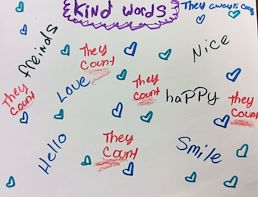 Kind words
They always Cou
freinds
They
Count
Nice
They
Count
Love
They
Count
happy
They
Count
Hello
They
Count
Smile